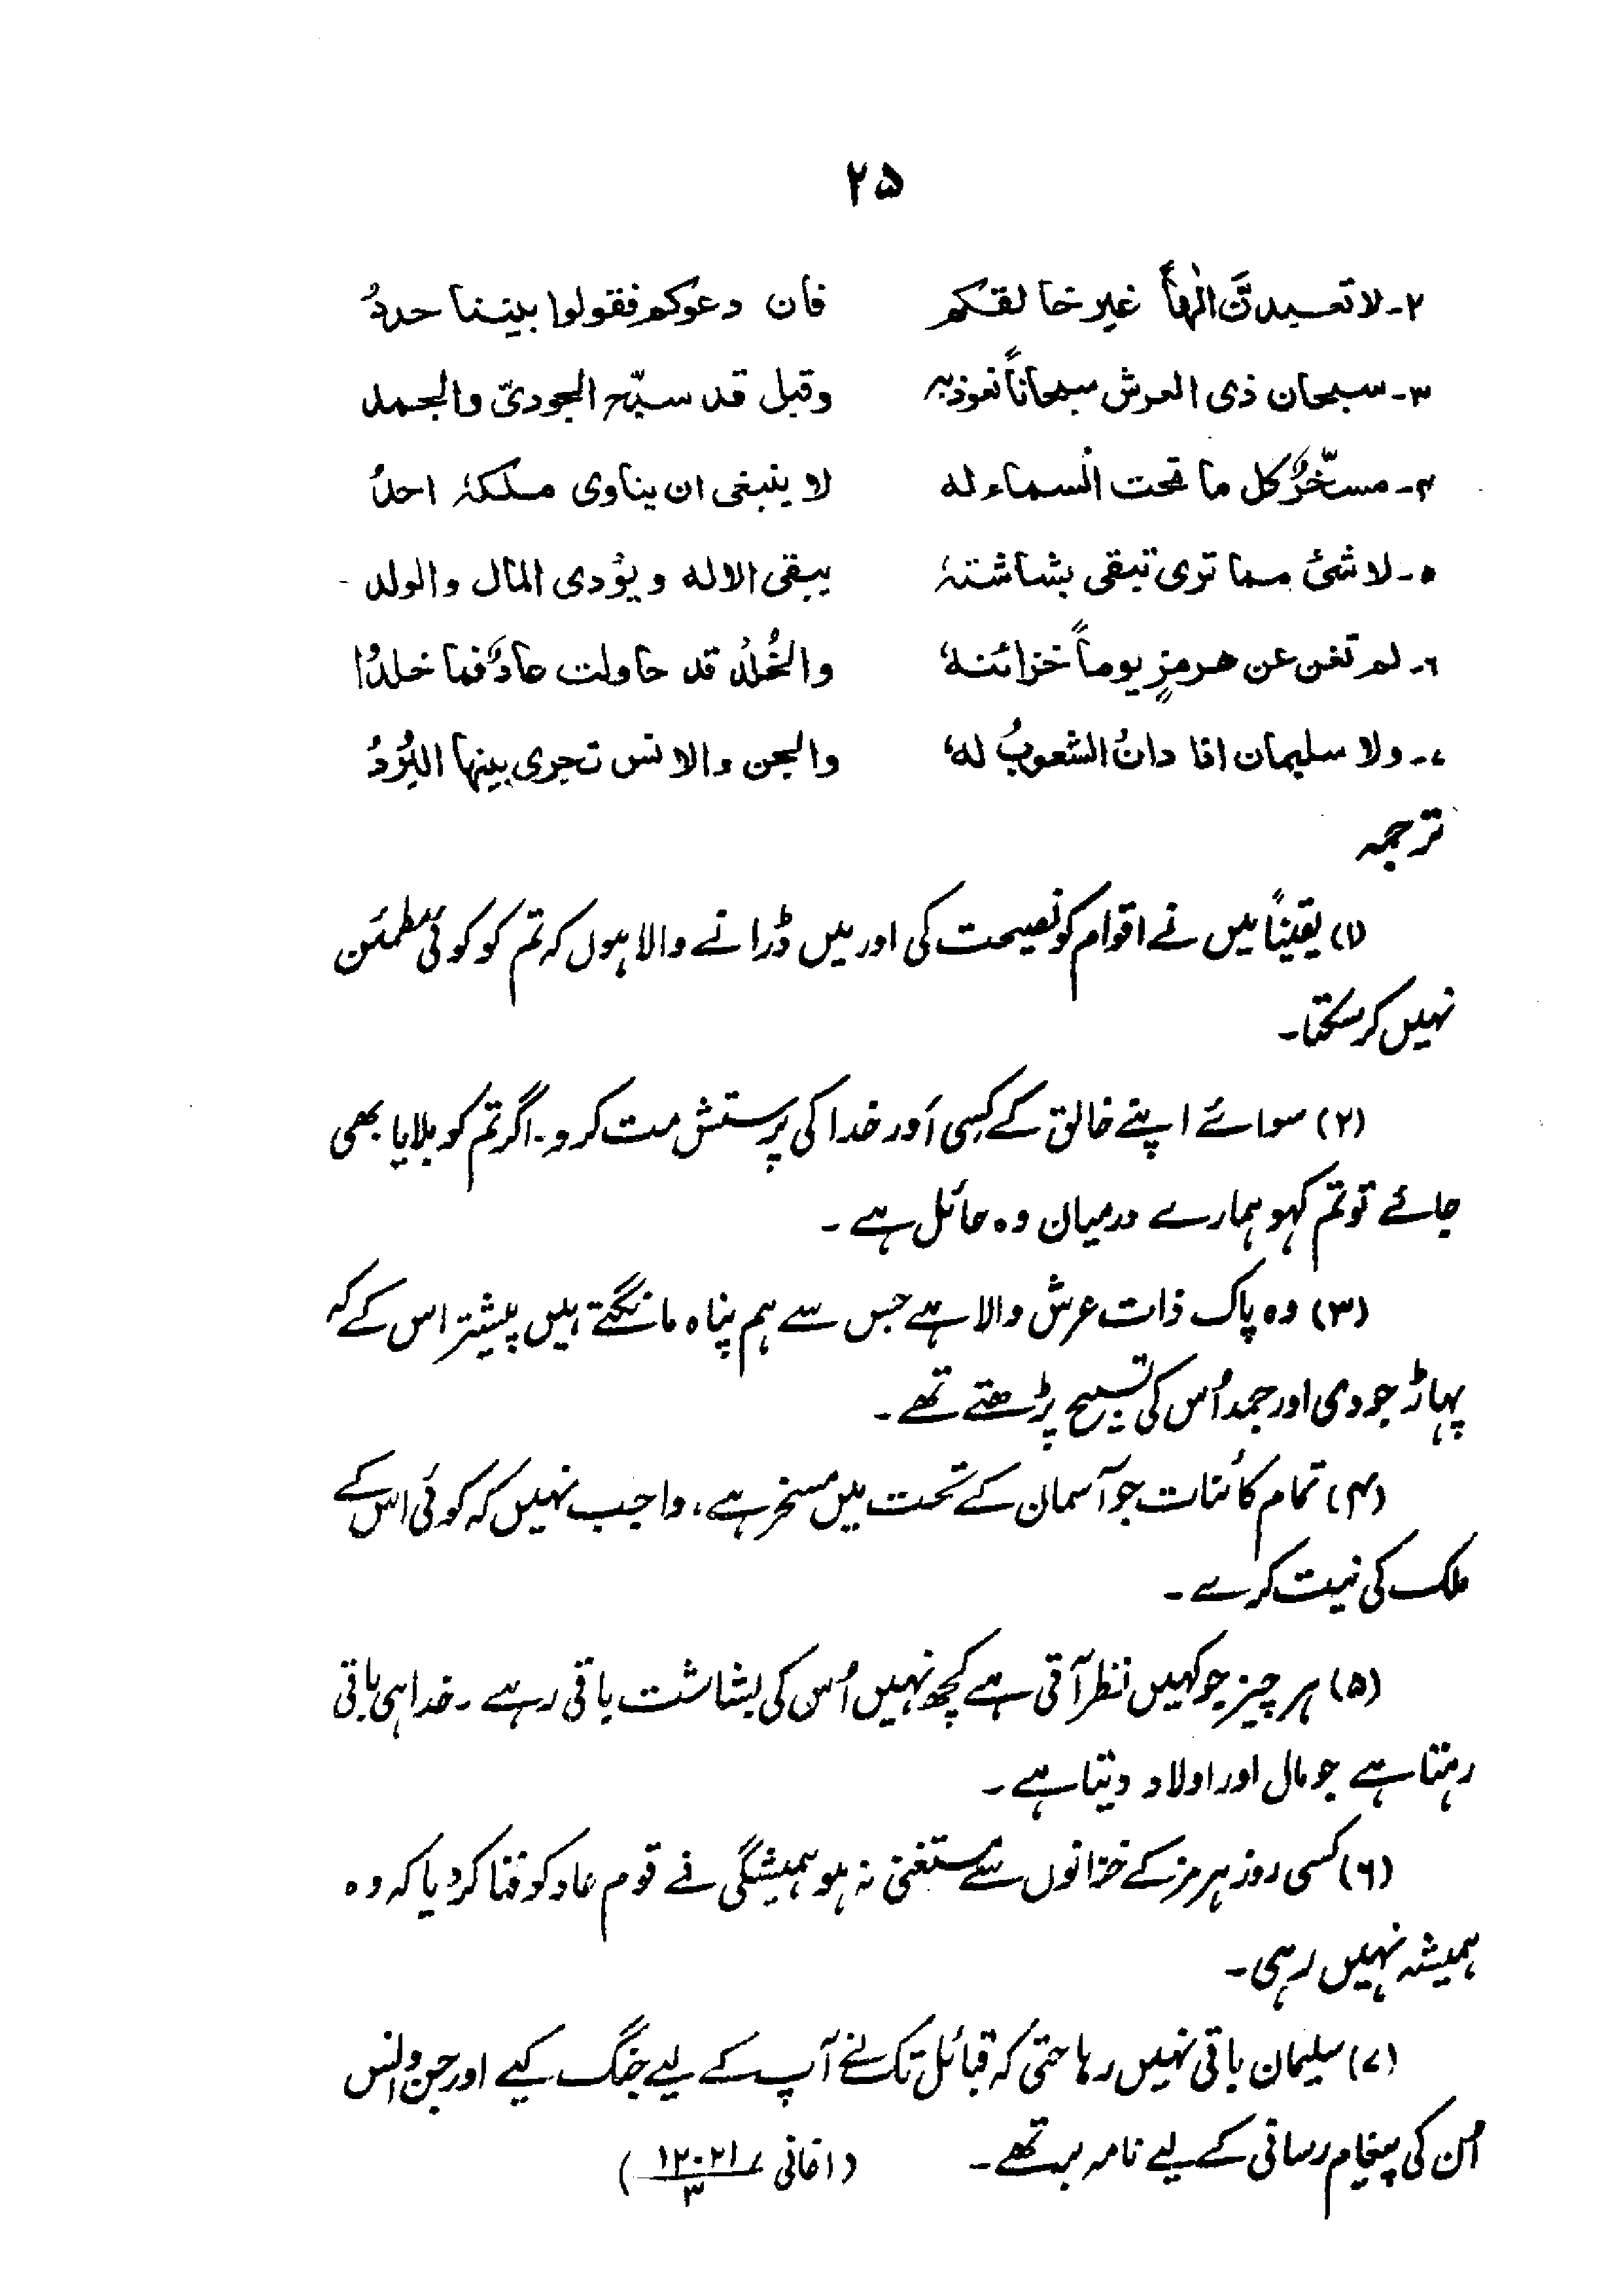 ۲۵
۲۔ لا تعبدنّ الٰھاً غیر خالقکم فان دعوکم فقولوا بیننا حددُ
۳۔ سبحان ذی العرش سبحاناً نعوذ بہ وقبل قد سبّح الجودیّ والجمد
۴۔ مسخّرٌ کل ما تحت السماء لہ لا ینبغی ان یناوی ملکہٗ احدٌ
۵۔ لا شئ مما تری تبقی بشاشتہٗ یبقی الالہ ویؤدی المال والولد
۶۔ لم تغن عن ھرمزٍ یوماً خزائنہٗ والخُلدُ قد حاولت عادٌ فما خلدُا
۷۔ ولا سلیمان اذا دانُ الشعوبُ لہٗ والجن والانس تجری بینھا البُرُدُ
ترجمہ
(۱) یقیناً میں نے اقوام کو نصیحت کی اور میں ڈرانے والا ہوں کہ تم کو کوئی مطمئن
نہیں کر سکتا۔
(۲) سوائے اپنے خالق کے کسی اَور خدا کی پرستش مت کرو۔ اگر تم کو بلایا بھی
جائے تو تم کہو ہمارے درمیان وہ حائل ہے۔
(۳) وہ پاک ذات عرش والا ہے جس سے ہم پناہ مانگتے ہیں پیشتر اس کے کہ
پہاڑ جودی اور جمد اُس کی تسبیح پڑھتے تھے۔
(۴) تمام کائنات جو آسمان کے تحت میں مسخر ہے، واجب نہیں کہ کوئی اس کے
ملک کی نیت کرے۔
(۵) ہر چیز جو کہیں نظر آتی ہے کچھ نہیں اُس کی بشاشت باقی رہے۔ خدا ہی باقی
رہتا ہے جو مال اور اولاد دیتا ہے۔
(۶) کسی روز ہرمز کے خزانوں سے مستغنی نہ ہو ہمیشگی نے قوم عاد کو فنا کر دیا کہ وہ
ہمیشہ نہیں رہی۔
(۷) سلیمان باقی نہیں رہا حتی کہ قبائل تک نے آپ کے لیے جنگ کیے اور جن و انس
اُن کی پیغام رسانی کے لیے نامہ بر تھے۔ (اغانی ۱۲۰۲۱/۳)